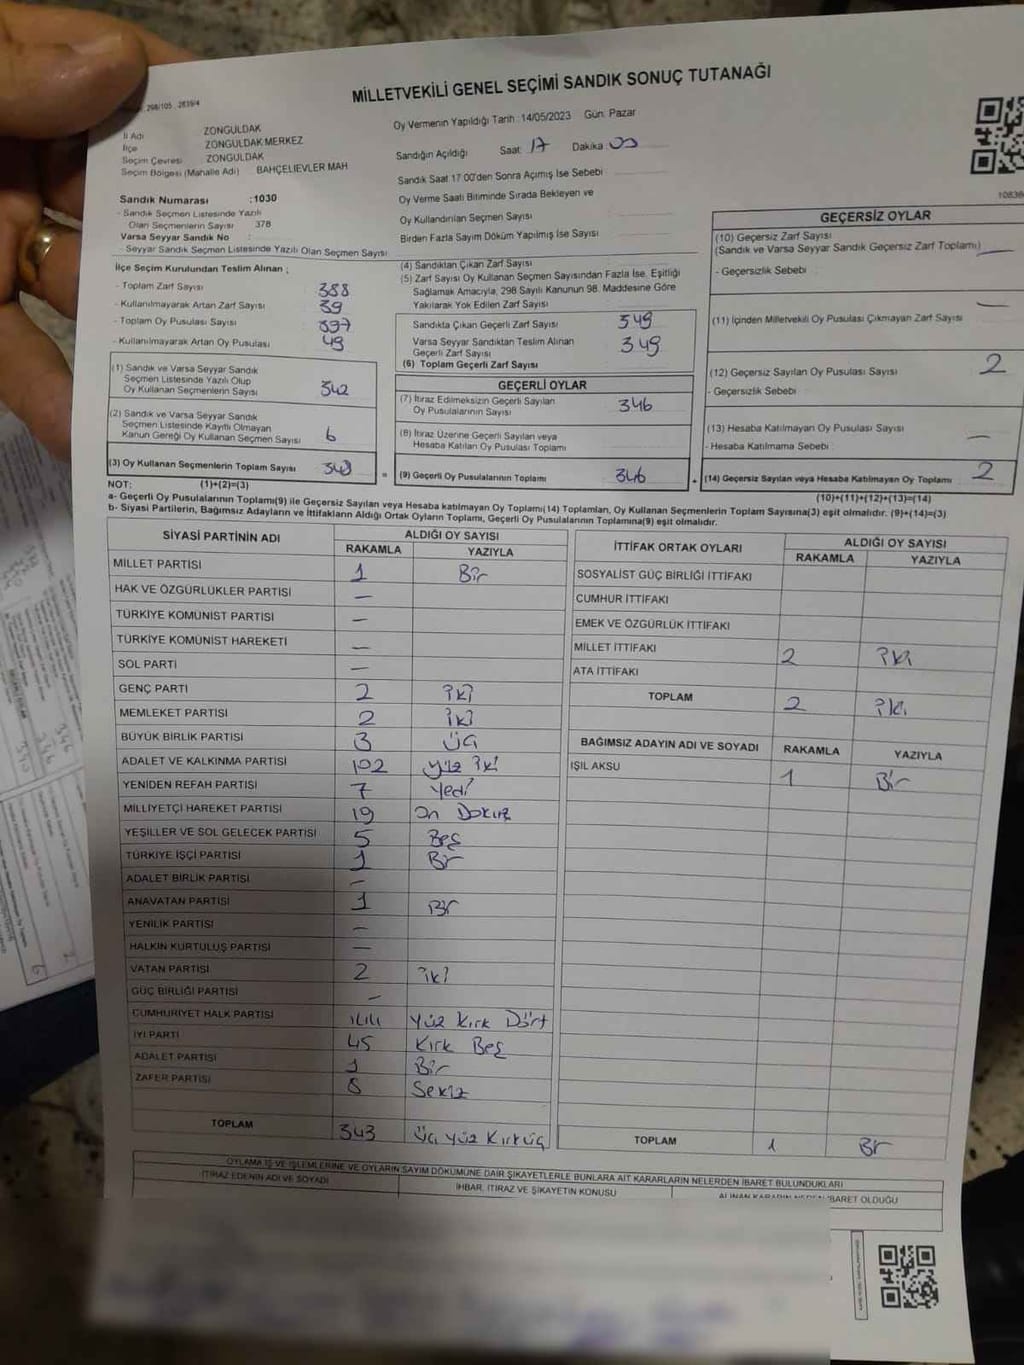 298/105 . 2839/4
MİLLETVEKİLİ GENEL SEÇİMİ SANDIK SONUÇ TUTANAĞI
İl Adı ZONGULDAK
İlçe ZONGULDAK MERKEZ
Seçim Çevresi ZONGULDAK
Seçim Bölgesi (Mahalle Adı) BAHÇELİEVLER MAH
Oy Vermenin Yapıldığı Tarih :14/05/2023 Gün: Pazar
Sandığın Açıldığı Saat: 17 Dakika 00
Sandık Saat 17.00'den Sonra Açımış İse Sebebi
Oy Verme Saati Bitiminde Sırada Bekleyen ve
Oy Kullandırılan Seçmen Sayısı
Birden Fazla Sayım Döküm Yapılmış İse Sayısı
Sandık Numarası :1030
- Sandık Seçmen Listesinde Yazılı
Olan Seçmenlerin Sayısı 378
Varsa Seyyar Sandık No :
- Seyyar Sandık Seçmen Listesinde Yazılı Olan Seçmen Sayısı
İlçe Seçim Kurulundan Teslim Alınan ;
- Toplam Zarf Sayısı 388
- Kullanılmayarak Artan Zarf Sayısı 39
- Toplam Oy Pusulası Sayısı 397
- Kullanılmayarak Artan Oy Pusulası 49
(1) Sandık ve Varsa Seyyar Sandık
Seçmen Listesinde Yazılı Olup
Oy Kullanan Seçmenlerin Sayısı 342
(2) Sandık ve Varsa Seyyar Sandık
Seçmen Listesinde Kayıtlı Olmayan
Kanun Gereği Oy Kullanan Seçmen Sayısı 6
(3) Oy Kullanan Seçmenlerin Toplam Sayısı
(4) Sandıktan Çıkan Zarf Sayısı
(5) Zarf Sayısı Oy Kullanan Seçmen Sayısından Fazla İse, Eşitliği
Sağlamak Amacıyla, 298 Sayılı Kanunun 98. Maddesine Göre
Yakılarak Yok Edilen Zarf Sayısı
Sandıkta Çıkan Geçerli Zarf Sayısı 349
Varsa Seyyar Sandıktan Teslim Alınan
Geçerli Zarf Sayısı 349
(6) Toplam Geçerli Zarf Sayısı
GEÇERLİ OYLAR
(7) İtiraz Edilmeksizin Geçerli Sayılan
Oy Pusulalarının Sayısı 346
(8) İtiraz Üzerine Geçerli Sayılan veya
Hesaba Katılan Oy Pusulası Toplamı
= (9) Geçerli Oy Pusulalarının Toplamı 346
GEÇERSİZ OYLAR
(10) Geçersiz Zarf Sayısı
(Sandık ve Varsa Seyyar Sandık Geçersiz Zarf Toplamı) —
- Geçersizlik Sebebi
(11) İçinden Milletvekili Oy Pusulası Çıkmayan Zarf Sayısı —
(12) Geçersiz Sayılan Oy Pusulası Sayısı 2
- Geçersizlik Sebebi :
(13) Hesaba Katılmayan Oy Pusulası Sayısı —
- Hesaba Katılmama Sebebi
+ (14) Geçersiz Sayılan veya Hesaba Katılmayan Oy Toplamı 2
NOT: (1)+(2)=(3)
(10)+(11)+(12)+(13)=(14)
a- Geçerli Oy Pusulalarının Toplamı(9) ile Geçersiz Sayılan veya Hesaba katılmayan Oy Toplamı(14) Toplamları, Oy Kullanan Seçmenlerin Toplam Sayısına(3) eşit olmalıdır. (9)+(14)=(3)
b- Siyasi Partilerin, Bağımsız Adayların ve İttifakların Aldığı Ortak Oyların Toplamı, Geçerli Oy Pusulalarının Toplamına(9) eşit olmalıdır.
SİYASİ PARTİNİN ADI ALDIĞI OY SAYISI
RAKAMLA YAZIYLA
MİLLET PARTİSİ 1 Bir
HAK VE ÖZGÜRLÜKLER PARTİSİ —
TÜRKİYE KOMÜNİST PARTİSİ —
TÜRKİYE KOMÜNİST HAREKETİ —
SOL PARTİ —
GENÇ PARTİ 2 iki
MEMLEKET PARTİSİ 2 iki
BÜYÜK BİRLİK PARTİSİ 3 üç
ADALET VE KALKINMA PARTİSİ 102 yüz iki
YENİDEN REFAH PARTİSİ 7 yedi
MİLLİYETÇİ HAREKET PARTİSİ 19 on Dokuz
YEŞİLLER VE SOL GELECEK PARTİSİ 5 Beş
TÜRKİYE İŞÇİ PARTİSİ 1 Bir
ADALET BİRLİK PARTİSİ —
ANAVATAN PARTİSİ 1 Bir
YENİLİK PARTİSİ —
HALKIN KURTULUŞ PARTİSİ —
VATAN PARTİSİ 2 iki
GÜÇ BİRLİĞİ PARTİSİ —
CUMHURİYET HALK PARTİSİ 144 Yüz Kırk Dört
İYİ PARTİ 45 Kırk Beş
ADALET PARTİSİ 1 Bir
ZAFER PARTİSİ 8 Sekiz
TOPLAM 343 Üç yüz Kırküç
İTTİFAK ORTAK OYLARI ALDIĞI OY SAYISI
RAKAMLA YAZIYLA
SOSYALİST GÜÇ BİRLİĞİ İTTİFAKI
CUMHUR İTTİFAKI
EMEK VE ÖZGÜRLÜK İTTİFAKI
MİLLET İTTİFAKI 2 iki
ATA İTTİFAKI
TOPLAM 2 iki
BAĞIMSIZ ADAYIN ADI VE SOYADI RAKAMLA YAZIYLA
IŞIL AKSU 1 Bir
TOPLAM 1 Bir
OYLAMA İŞ VE İŞLEMLERİNE VE OYLARIN SAYIM DÖKÜMÜNE DAİR ŞİKAYETLERLE BUNLARA AİT KARARLARIN NELERDEN İBARET BULUNDUKLARI
İTİRAZ EDENİN ADI VE SOYADI İHBAR, İTİRAZ VE ŞİKAYETİN KONUSU ALINAN KARARIN NEDEN İBARET OLDUĞU